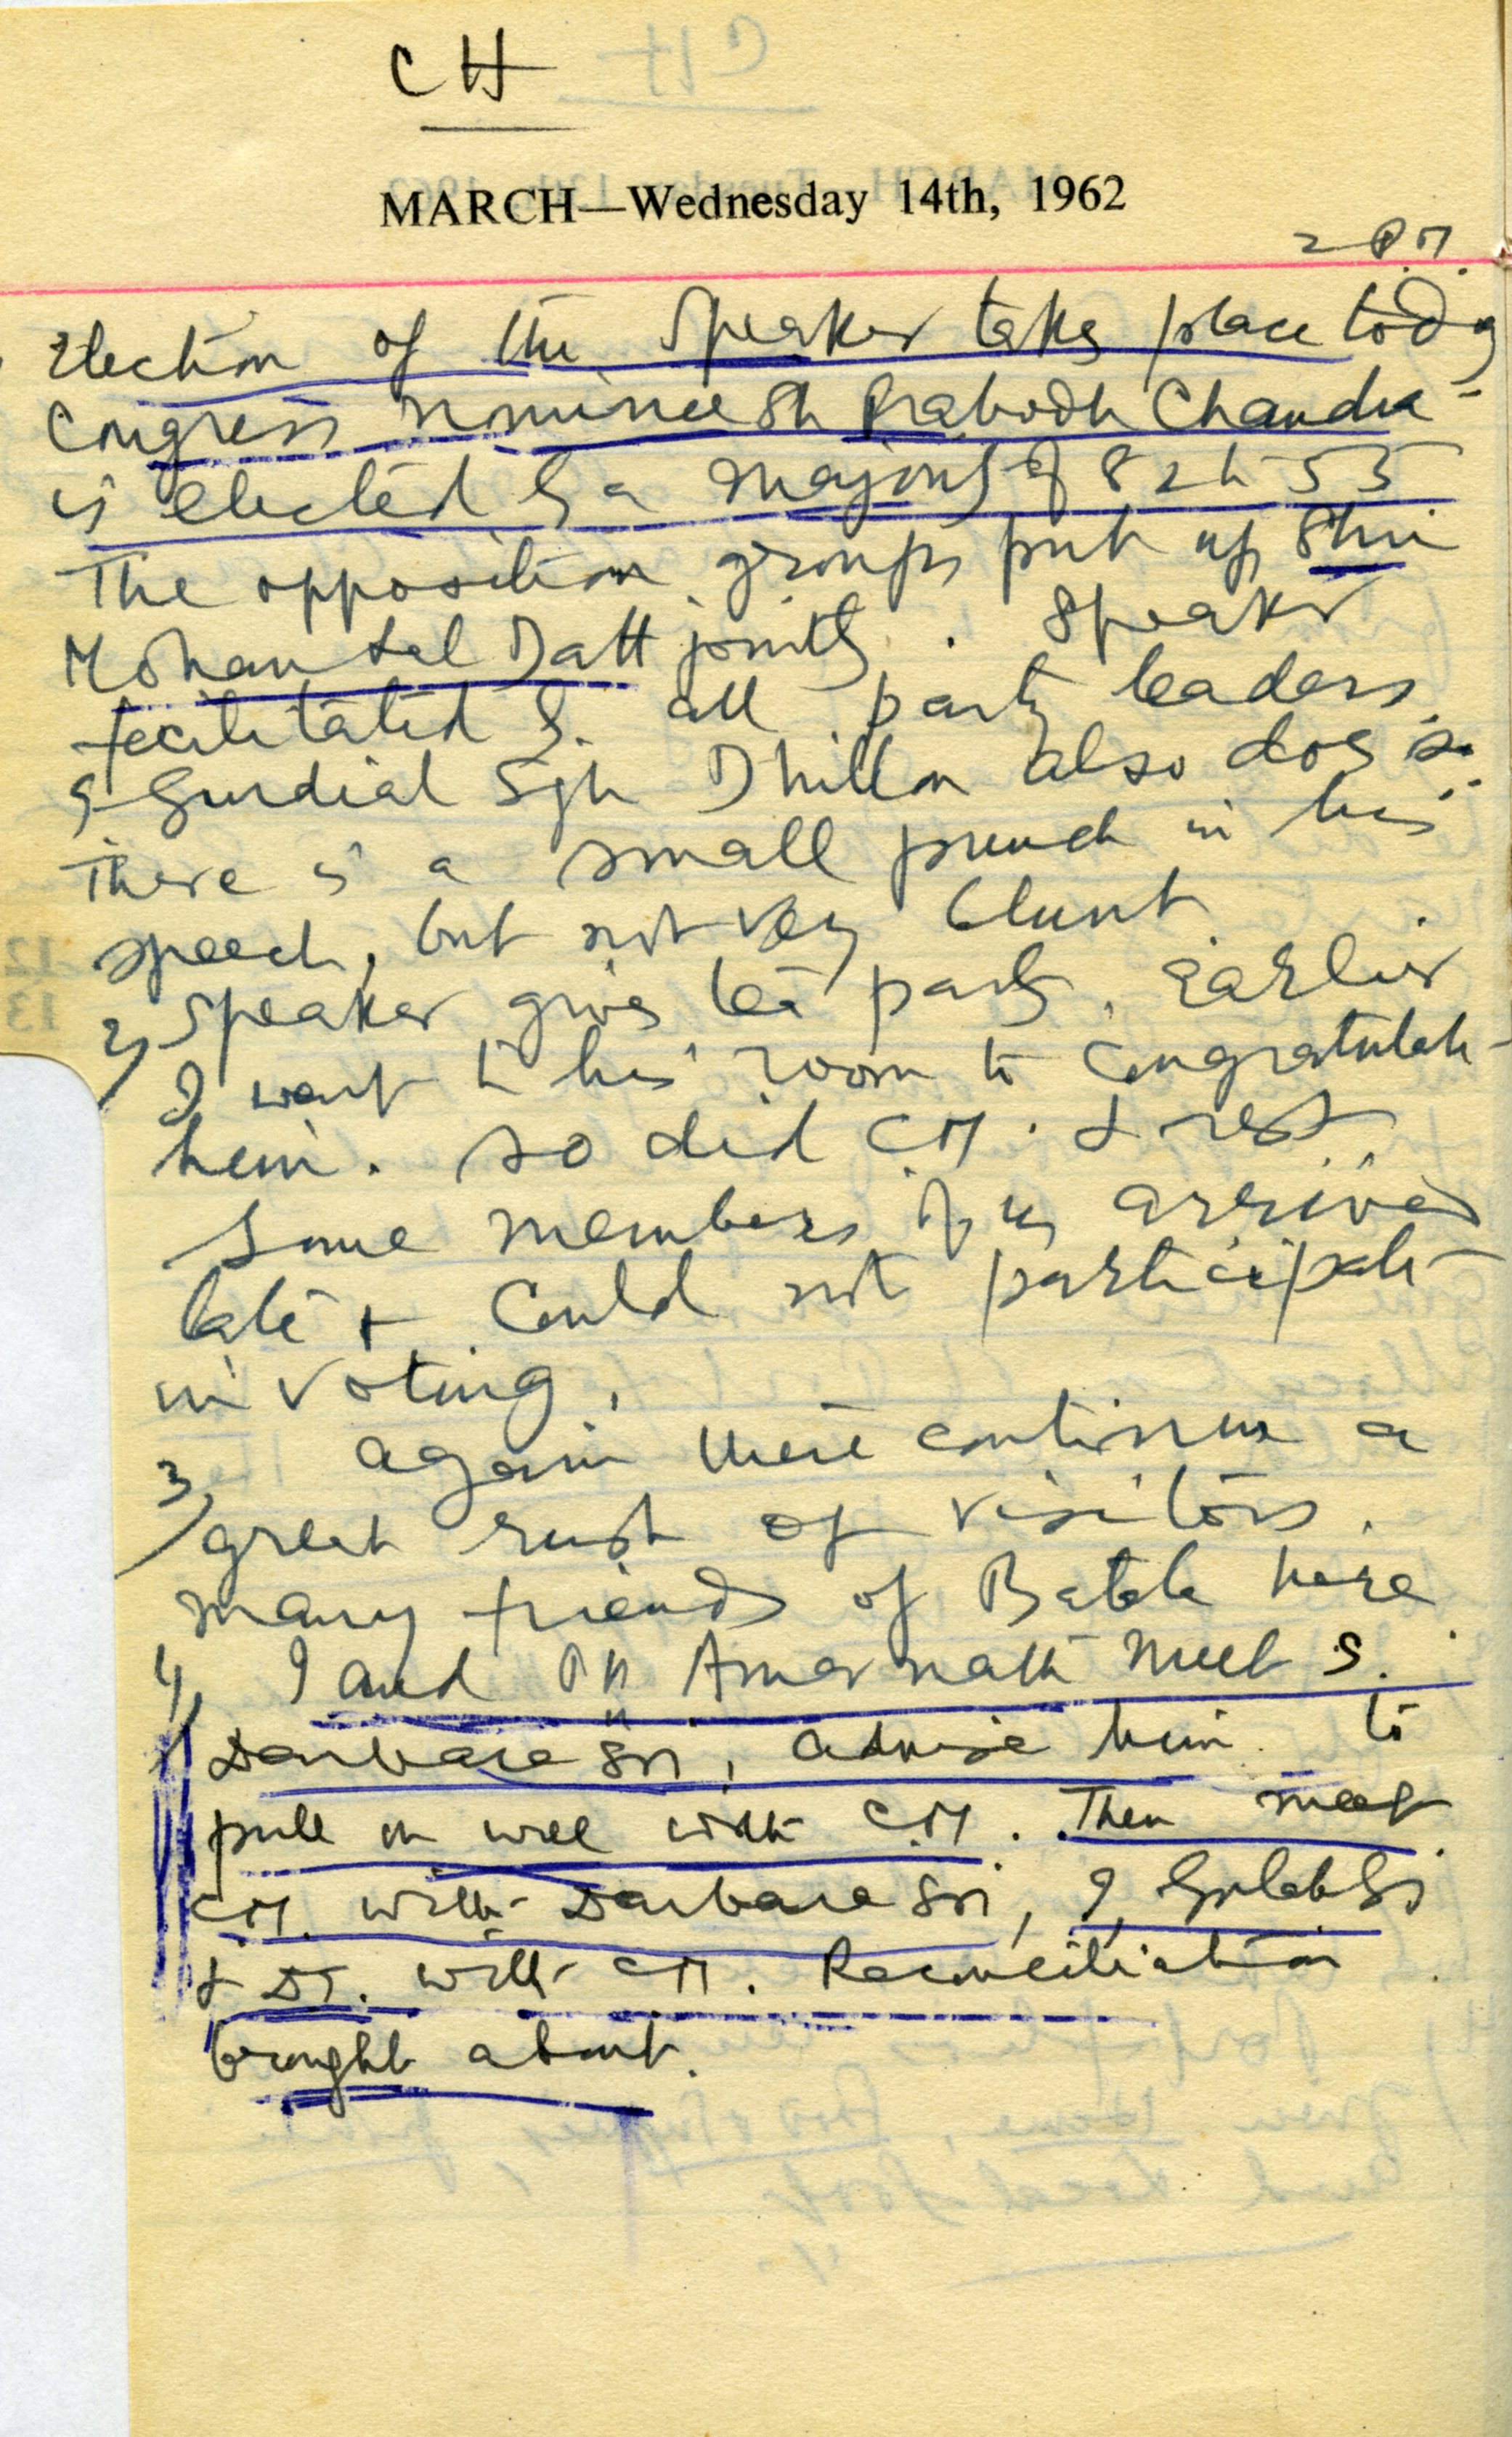 CH
MARCH—Wednesday 14th, 1962
2 P.M.
Election of the Speaker takes place today
Congress nominee Sh Prabodh Chandra
is elected by a majority of 82 to 55
The opposition groups put up Shri
Mohan Lal Datt jointly. Speaker
fecilitated by all party leaders.
S Gurdial Sgh Dhillon also does so.
There is a small punch in his
speech, but not very blunt.
2) Speaker gives tea party. Earlier
I went to his room to congratulate
him. So did CM. & rest
Some members of us arrived
late & could not participate
in voting.
3) again there continues a
great rush of visitors.
many friends of Batala here
4) I and Pt Amar nath meet S.
Darbara Sn, advise him to
pull on well with C.M. Then meet
C.M. with Darbara Sn, I, Gulab Sn
& DS. with CM. Reconciliation
brought about.